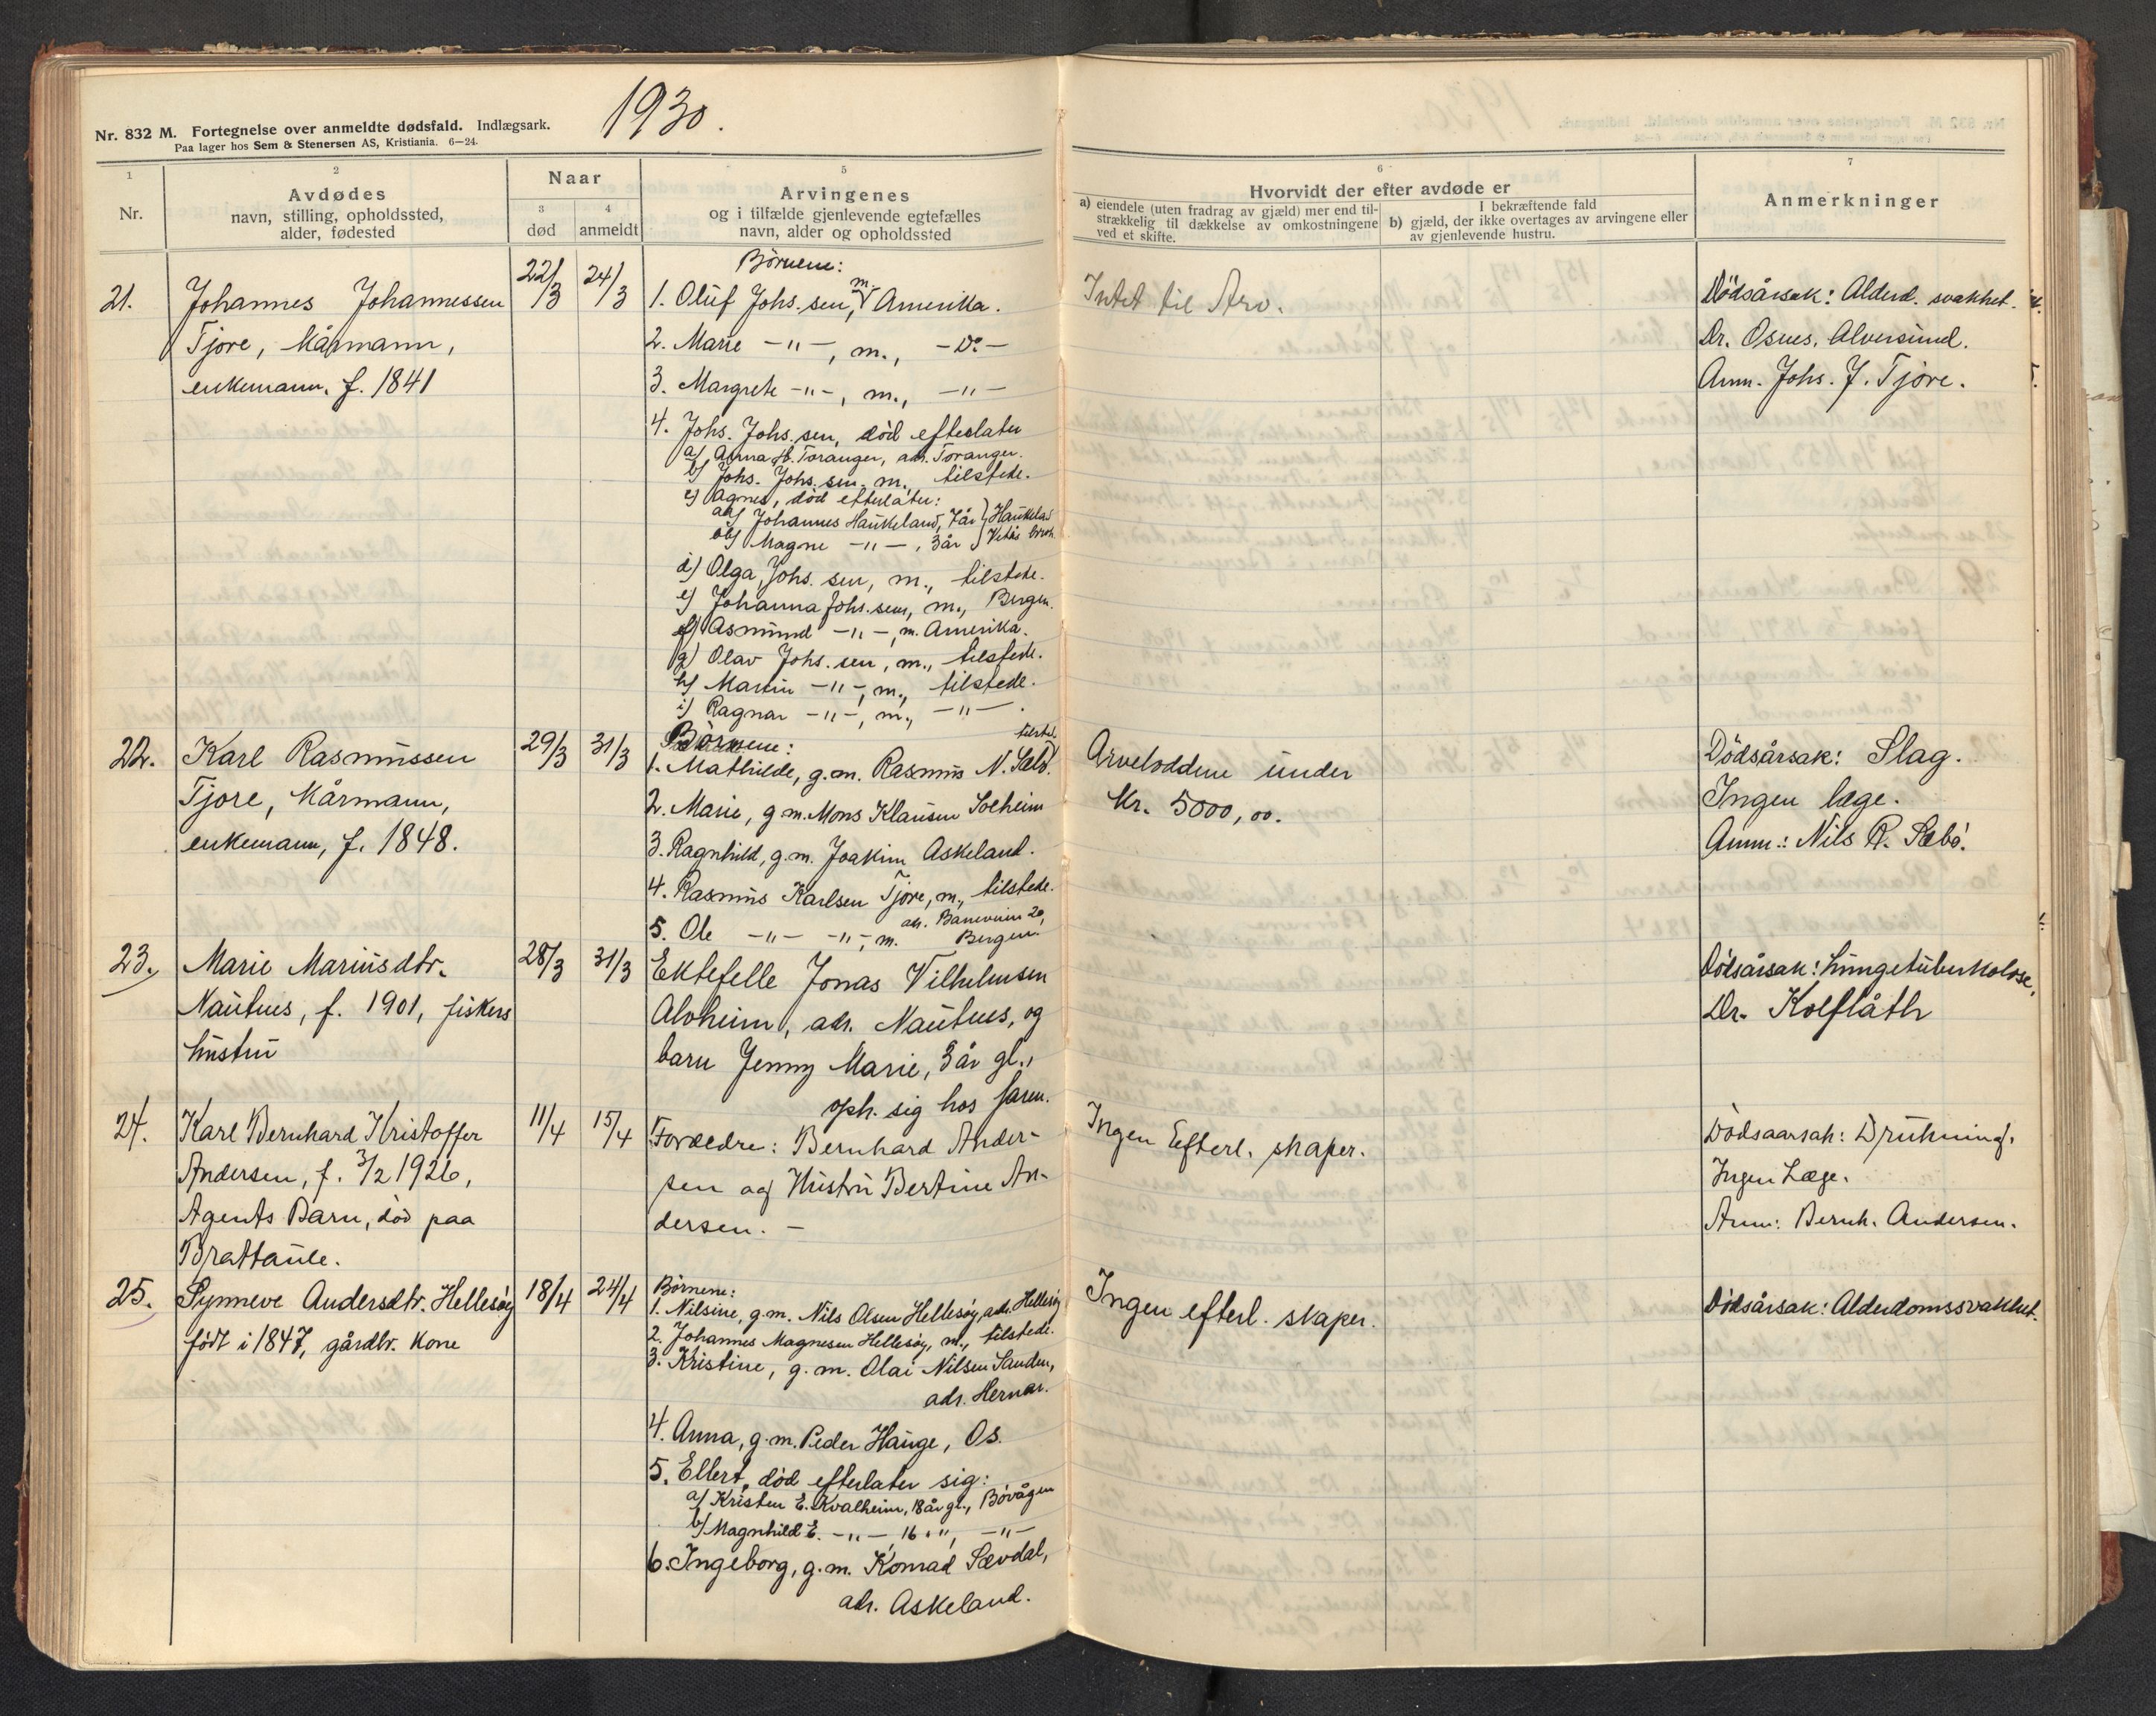 1930.
Nr. 832 M. Fortegnelse over anmeldte dødsfald. Indlægsark.
Paa lager hos Sem & Stenersen AS, Kristiania. 6—24.
1
2
Naar
5
6
7
Nr.
Avdødes
navn, stilling, opholdssted,
alder, fødested
3
død
4
anmeldt
Arvingenes
og i tilfælde gjenlevende egtefælles
navn, alder og opholdssted
Hvorvidt der efter avdøde er
a) eiendele (uten fradrag av gjæld) mer end til-
strækkelig til dækkelse av omkostningene
ved et skifte.
I bekræftende fald
b) gjæld, der ikke overtages av arvingene eller
av gjenlevende hustru.
Anmerkninger
21.
Johannes Johannessen
Tjore, Kårmann,
enkemann, f. 1841
22/3
24/3
Børnene:
1. Oluf Johs.sen, m. Amerika.
2. Marie -"-, m., -Do-
3. Margrete -"-, m., -"-
4. Johs. Johs.sen, død efteslater
a) Anna H. Toranger, adr. Toranger.
b) Johs. Johs.sen. m., tilstede.
c) Agnes, død efterlater:
aa) Johannes Haukeland, 7 år } Haukeland
bb) Magne -"-, 3 år
d) Olga Johs.sen, m., tilstede.
e) Johanna Johs.sen, m., Bergen.
f) Asmund -"-, m. Amerika.
g) Olav Johs.sen, m., tilstede.
h) Martin -"-, m., tilstede.
i) Ragnar -"-, m., -"-.
Intet til Arv.
Dødsårsak: Alderd. svakhet.
Dr. Osnes, Alversund.
Anm. Johs. J. Tjore.
22.
Karl Rasmussen
Tjore, Kårmann,
enkemann, f. 1848.
29/3
31/3
Børnene:
tilsted.
1. Mathilde, g.m. Rasmus N. Sæbø.
2. Marie, g.m. Mons Klausen Solheim
3. Ragnhild, g.m. Joakim Askeland.
4. Rasmus Karlsen Tjore, m., tilstede.
5. Ole -"- -"-, m. adr. Baneveien 20,
Bergen.
Arveloddene under
Kr. 5000,00.
Dødsårsak: Slag.
Ingen læge.
Anm.: Nils R. Sæbø.
23.
Marie Mariusdtr.
Nautnes, f. 1901, fiskers
hustru
28/3
31/3
Ektefelle Jonas Vilhelmsen
Alvheim, adr. Nautnes, og
barn Jenny Marie, 3 år gl.,
oph. sig hos faren.
Dødsårsak: Lungetuberkolose,
Dr. Kolflåth
24.
Karl Bernhard Kristoffer
Andersen, f. 3/2 1926,
Agents Barn, død paa
Brattaule.
11/4
15/4
Forældre: Bernhard Ander-
sen og Hustru Bertine An-
dersen. -
Ingen Efterl. skaper.
Dødsaarsak: Drukning.
Ingen Læge.
Anm: Bernh. Andersen.
25.
Synneve Andersdtr. Hellesøy
født i 1847, gårdbr. kone
18/4
24/4
Børnene:
1. Nilsine, g.m. Nils Olsen Hellesøy, adr. Hellesøy
2. Johannes Magnesen Hellesøy, m., tilstede.
3. Kristine, g.m. Olai Nilsen Sanden,
adr. Hernar.
4. Anna, g.m. Peder Hauge, Os.
5. Ellert, død efterlater sig:
a) Kristen E. Kvalheim, 18 år gl., Bøvågen
b) Magnhild E. -"-, 16 " ", -"-
6. Ingeborg, g.m. Konrad Sævdal,
adr. Askeland.
Ingen efterl. skaper.
Dødsårsak: Alderdomssvakhet.